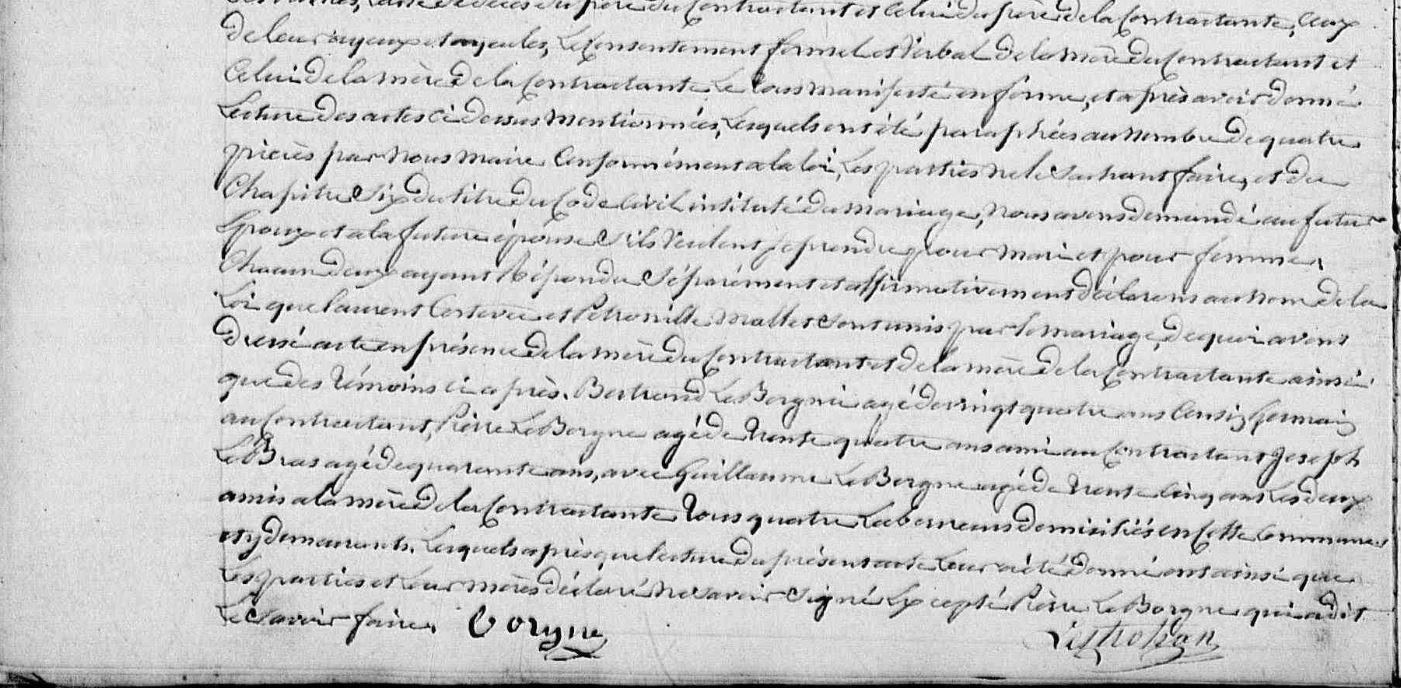 l'acte de décès du père du Contractant et celui du père de la Contractante, Ceux
de leurs ayeux et ayeules, Le Consentement formel et Verbal de la mère du Contractant et
Celui de la mère de la Contractante Le tous manifesté en forme, et après avoir donné
Lecture des actes ci dessus mentionnées, Lesquels ont été paraphées au nombre de quatre
pieces par nous maire Conformément a la loi, Les parties ne le Sachant faire, et du
Chapitre Six du titre du Code Civil intitulé du mariage, nous avons demandé au futur
Epoux et a la future épouse S'ils Veulent se prendre pour mari et pour femme,
Chacun deux ayant Répondu Séparément et affirmativement déclarons au nom de la
Loi que laurent et Pétronille mallet Sont unis par le mariage, de quoi avons
dressé acte en présence de la mère du Contractant et de la mère de la Contractante ainsi
que des Témoins ci après. Bertrand Le Borgne agé de vingt quatre ans Cousin Germain
au Contractant, Pierre Le Borgne agé de trente quatre ans ami au Contractant Joseph
Le Bras agé de quarante ans, avec Guillaume Le Borgne agé de trente Cinq ans Les deux
amis a la mère de la Contractante Tous quatre Laboureurs domiciliés en Cette Commune
et y demeurants, Lesquels après que lecture du présent acte Leur a été donné ont ainsi que
Les parties et Leur mères déclaré ne Savoir Signé Excepté Pierre Le Borgne qui a dit
Le Savoir faire. Borgne